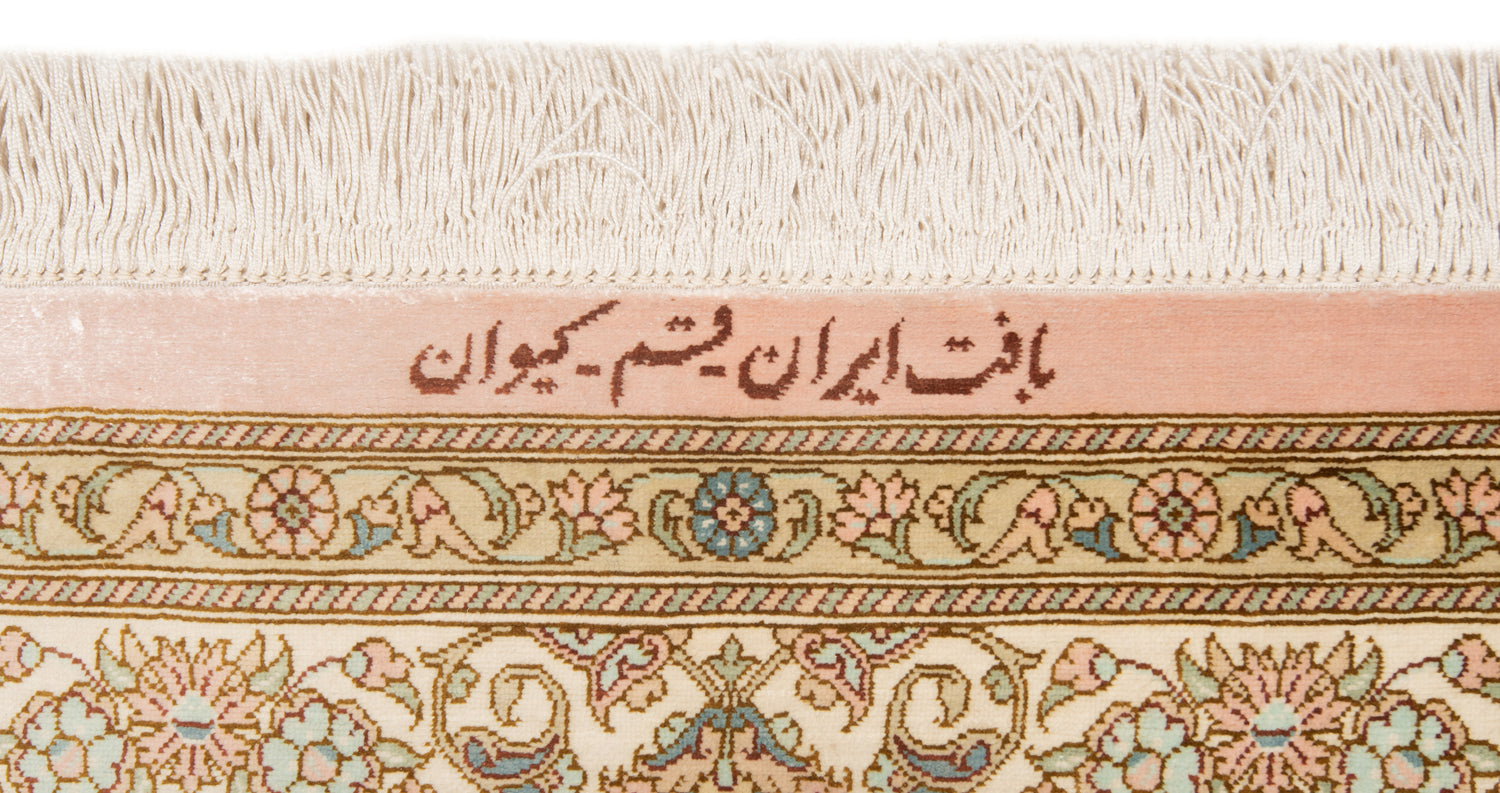 بافت ایران قم - کیوان